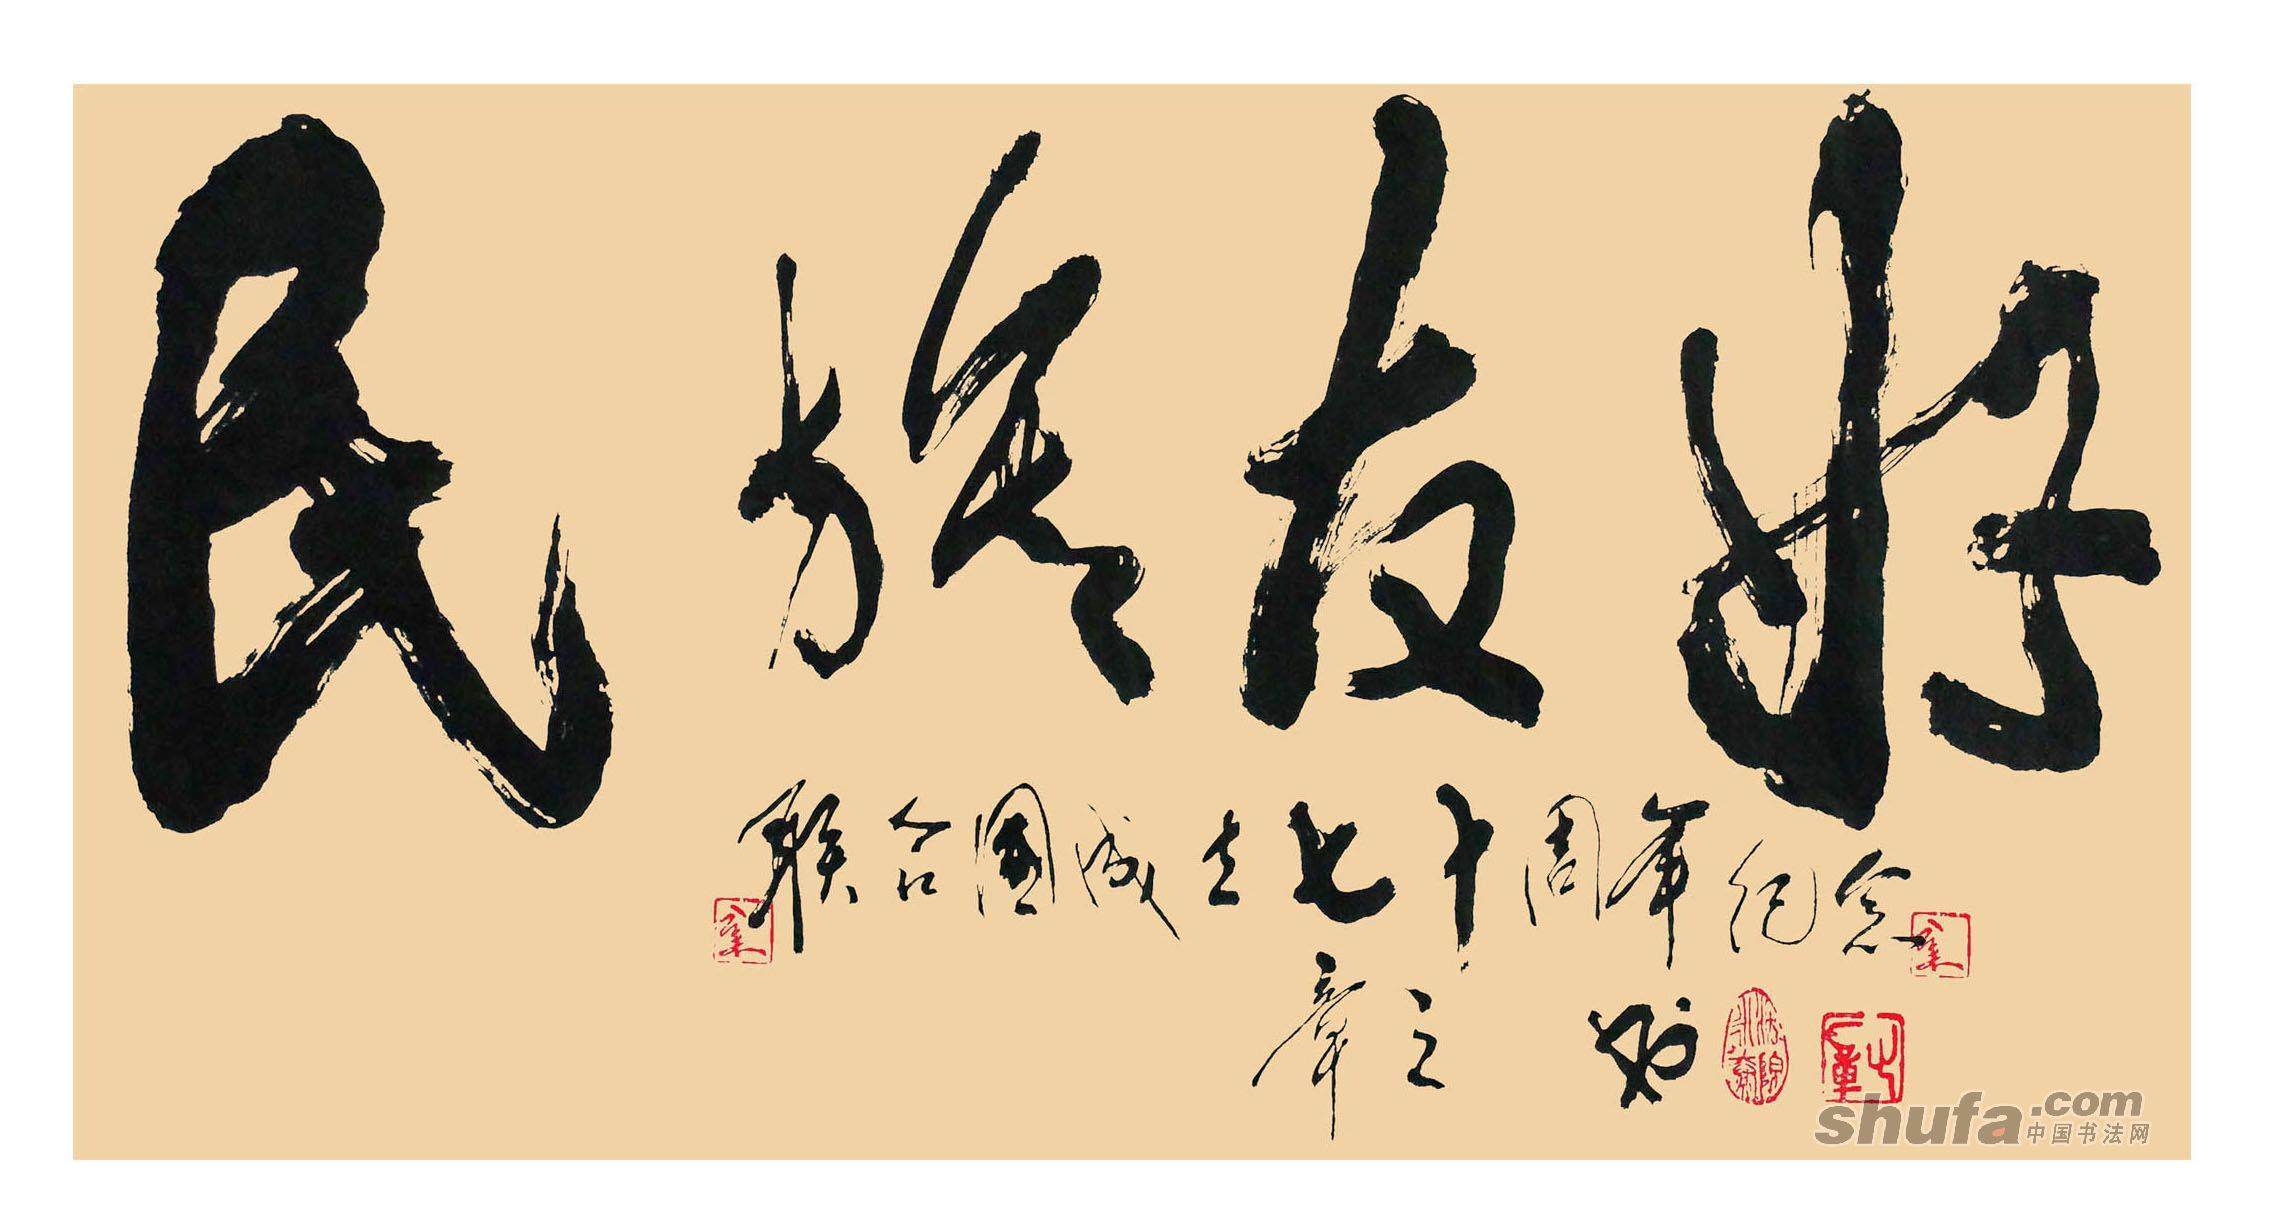 民族友好
联合国成立七十周年纪念
章之
shufa.com
中国书法网